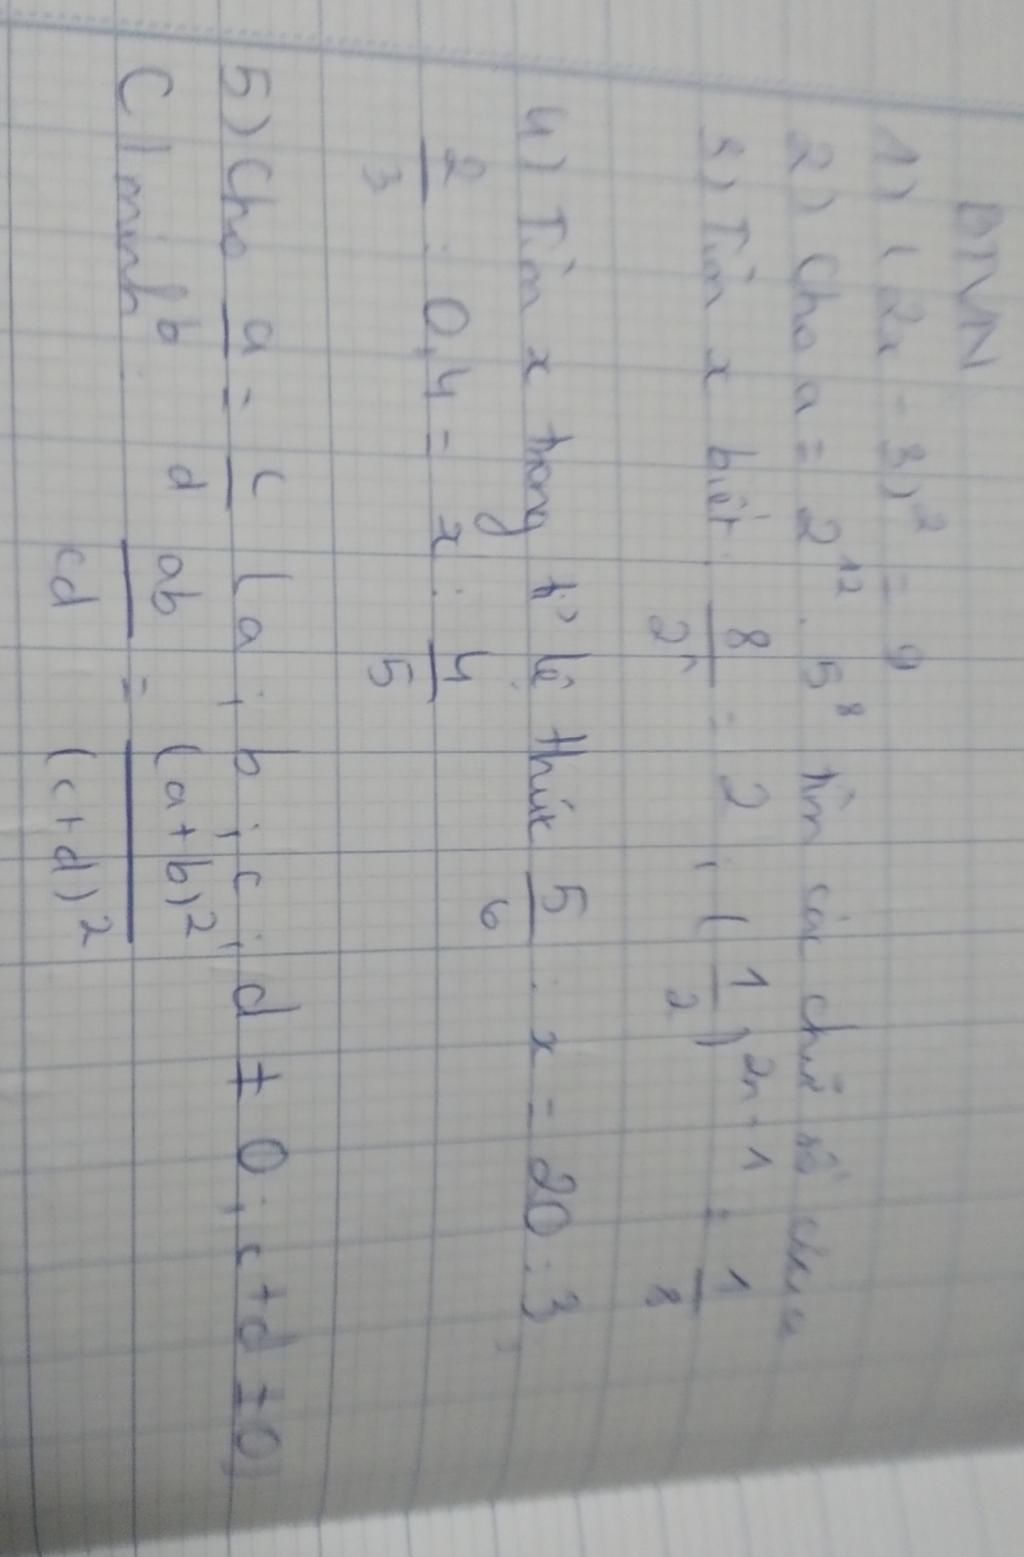 BTVN
1) (2x - 3)² = 9
2) Cho a = 2¹² . 5⁸ tìm các chữ số của a
3) Tìm x biết. 8/2ⁿ = 2 , (1/2)²ⁿ⁻¹ = 1/8
4) Tìm x trong tỉ lệ thức 5/6 : x = 20 : 3 ,
2/3 : 0,4 = x : 4/5
5) Cho a/b = c/d (a ; b ; c ; d ≠ 0 ; c + d ≠ 0)
C/minh ab/cd = (a+b)²/(c+d)²